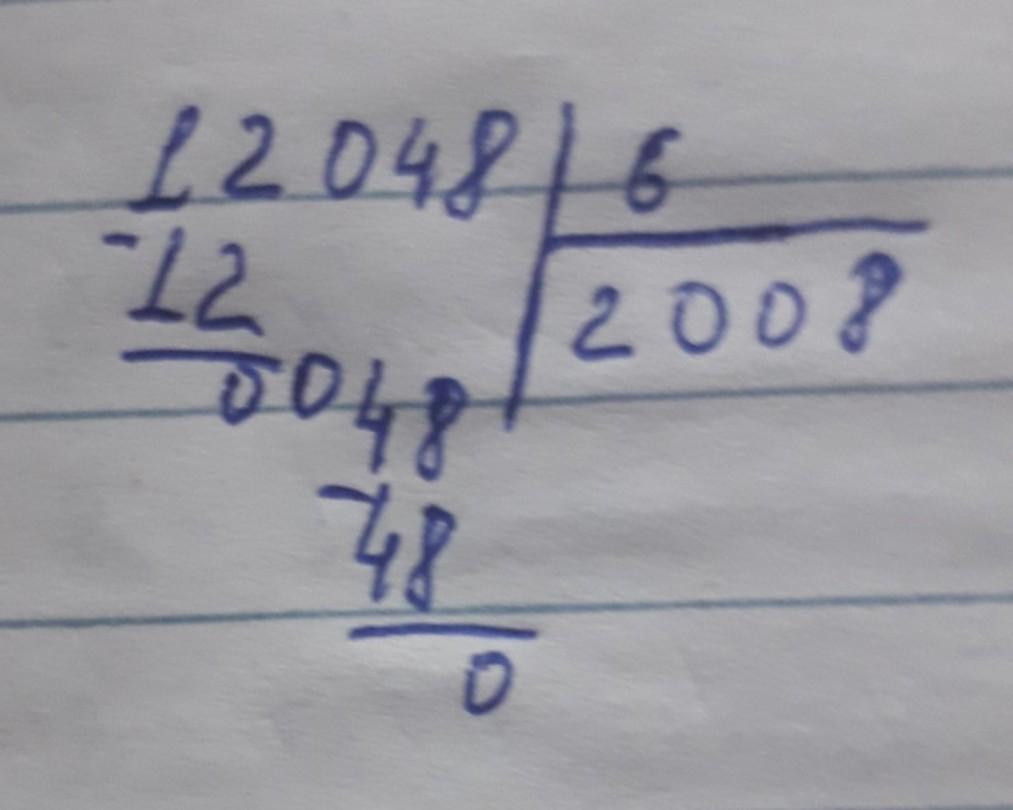 12048 | 6
-12 | 2008
0048
-48
0